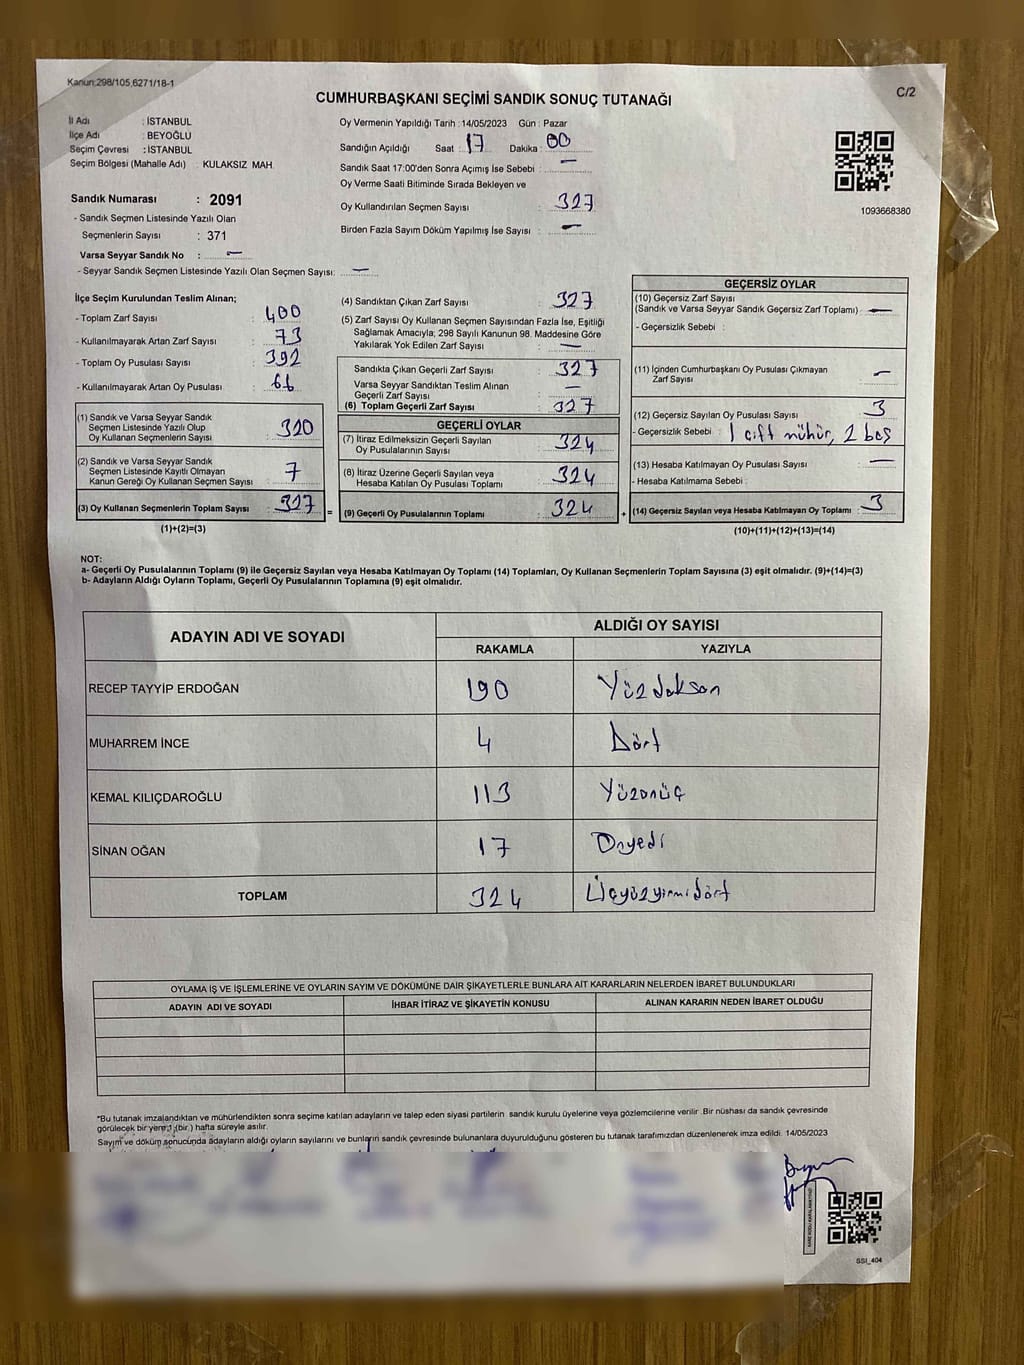 Kanun:298/105,6271/18-1
C/2
CUMHURBAŞKANI SEÇİMİ SANDIK SONUÇ TUTANAĞI
İl Adı : İSTANBUL
İlçe Adı : BEYOĞLU
Seçim Çevresi : İSTANBUL
Seçim Bölgesi (Mahalle Adı) : KULAKSIZ MAH.
Sandık Numarası : 2091
- Sandık Seçmen Listesinde Yazılı Olan
Seçmenlerin Sayısı : 371
Varsa Seyyar Sandık No : —
- Seyyar Sandık Seçmen Listesinde Yazılı Olan Seçmen Sayısı: —
Oy Vermenin Yapıldığı Tarih : 14/05/2023 Gün : Pazar
Sandığın Açıldığı Saat : 17 Dakika : 00
Sandık Saat 17:00'den Sonra Açımış İse Sebebi : —
Oy Verme Saati Bitiminde Sırada Bekleyen ve
Oy Kullandırılan Seçmen Sayısı : 327
Birden Fazla Sayım Döküm Yapılmış İse Sayısı : —
1093668380
İlçe Seçim Kurulundan Teslim Alınan;
- Toplam Zarf Sayısı : 400
- Kullanılmayarak Artan Zarf Sayısı : 73
- Toplam Oy Pusulası Sayısı : 392
- Kullanılmayarak Artan Oy Pusulası : 66
(1) Sandık ve Varsa Seyyar Sandık
Seçmen Listesinde Yazılı Olup
Oy Kullanan Seçmenlerin Sayısı : 320
(2) Sandık ve Varsa Seyyar Sandık
Seçmen Listesinde Kayıtlı Olmayan
Kanun Gereği Oy Kullanan Seçmen Sayısı : 7
(3) Oy Kullanan Seçmenlerin Toplam Sayısı : 327
(1)+(2)=(3)
=
(4) Sandıktan Çıkan Zarf Sayısı : 327
(5) Zarf Sayısı Oy Kullanan Seçmen Sayısından Fazla İse, Eşitliği
Sağlamak Amacıyla; 298 Sayılı Kanunun 98. Maddesine Göre
Yakılarak Yok Edilen Zarf Sayısı : —
Sandıkta Çıkan Geçerli Zarf Sayısı : 327
Varsa Seyyar Sandıktan Teslim Alınan
Geçerli Zarf Sayısı : —
(6) Toplam Geçerli Zarf Sayısı : 327
GEÇERLİ OYLAR
(7) İtiraz Edilmeksizin Geçerli Sayılan
Oy Pusulalarının Sayısı : 324
(8) İtiraz Üzerine Geçerli Sayılan veya
Hesaba Katılan Oy Pusulası Toplamı : 324
(9) Geçerli Oy Pusulalarının Toplamı : 324
+
GEÇERSİZ OYLAR
(10) Geçersiz Zarf Sayısı
(Sandık ve Varsa Seyyar Sandık Geçersiz Zarf Toplamı) : —
- Geçersizlik Sebebi :
(11) İçinden Cumhurbaşkanı Oy Pusulası Çıkmayan
Zarf Sayısı : —
(12) Geçersiz Sayılan Oy Pusulası Sayısı : 3
- Geçersizlik Sebebi : 1 çift mühür, 2 boş
(13) Hesaba Katılmayan Oy Pusulası Sayısı : —
- Hesaba Katılmama Sebebi :
(14) Geçersiz Sayılan veya Hesaba Katılmayan Oy Toplamı : 3
(10)+(11)+(12)+(13)=(14)
NOT:
a- Geçerli Oy Pusulalarının Toplamı (9) ile Geçersiz Sayılan veya Hesaba Katılmayan Oy Toplamı (14) Toplamları, Oy Kullanan Seçmenlerin Toplam Sayısına (3) eşit olmalıdır. (9)+(14)=(3)
b- Adayların Aldığı Oyların Toplamı, Geçerli Oy Pusulalarının Toplamına (9) eşit olmalıdır.
ADAYIN ADI VE SOYADI ALDIĞI OY SAYISI
RAKAMLA YAZIYLA
RECEP TAYYİP ERDOĞAN 190 Yüzdoksan
MUHARREM İNCE 4 Dört
KEMAL KILIÇDAROĞLU 113 Yüzonüç
SİNAN OĞAN 17 Onyedi
TOPLAM 324 Üçyüzyirmidört
OYLAMA İŞ VE İŞLEMLERİNE VE OYLARIN SAYIM VE DÖKÜMÜNE DAİR ŞİKAYETLERLE BUNLARA AİT KARARLARIN NELERDEN İBARET BULUNDUKLARI
ADAYIN ADI VE SOYADI İHBAR İTİRAZ VE ŞİKAYETİN KONUSU ALINAN KARARIN NEDEN İBARET OLDUĞU
*Bu tutanak imzalandıktan ve mühürlendikten sonra seçime katılan adayların ve talep eden siyasi partilerin sandık kurulu üyelerine veya gözlemcilerine verilir .Bir nüshası da sandık çevresinde
görülecek bir yere 1 (bir.) hafta süreyle asılır.
Sayım ve döküm sonucunda adayların aldığı oyların sayılarını ve bunların sandık çevresinde bulunanlara duyurulduğunu gösteren bu tutanak tarafımızdan düzenlenerek imza edildi. 14/05/2023
SSI_404